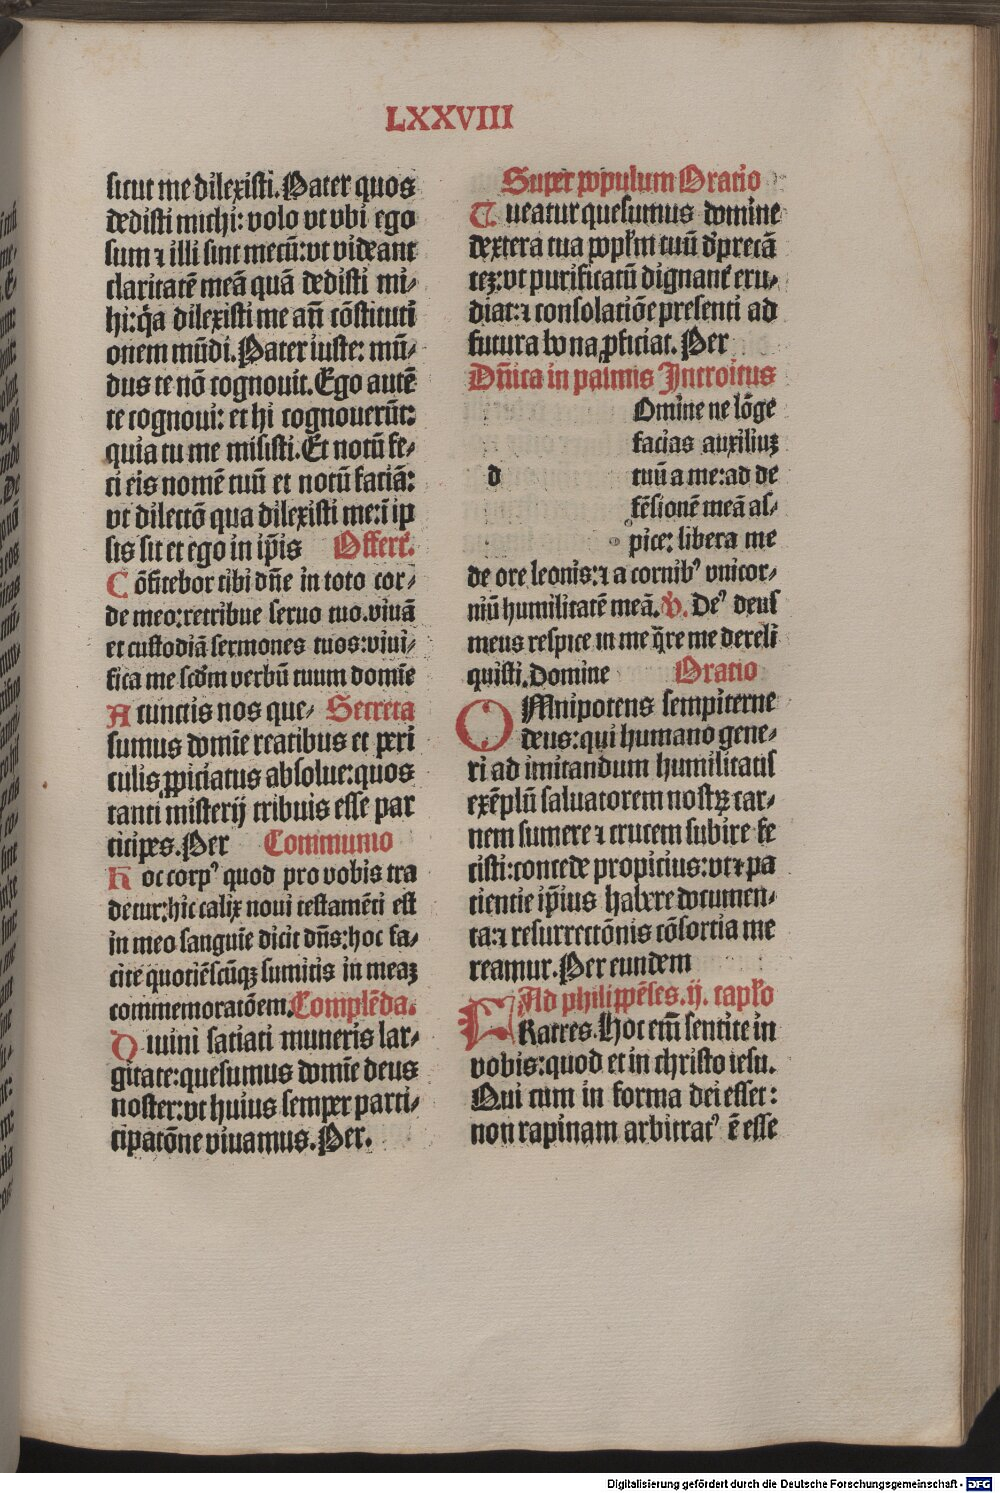 LXXVIII
sicut me dilexisti. Pater quos
dedisti michi: volo vt vbi ego
sum ⁊ illi sint mecū: vt videant
claritatē meā quā dedisti mi⸗
hi: q̄a dilexisti me an̄ cōstituti
onem mūdi. Pater iuste: mū⸗
dus te nō cognouit. Ego autē
te cognoui: et hi cognouerūt:
quia tu me misisti. Et notū fe⸗
ci eis nomē tuū et notū faciā:
vt dilectō qua dilexisti me: ī ip
sis sit et ego in ip̄is Offert̄.
Cōfitebor tibi dn̄e in toto cor⸗
de meo: retribue seruo tuo. viuā
et custodiā sermones tuos: viui⸗
fica me scd̄m verbū tuum domīe
A cunctis nos que⸗ Secreta
sumus domīe reatibus et peri
culis ꝓpiciatus absolue: quos
tanti misterij tribuis esse par
ticipes. Per Communio
Hoc corpꝰ quod pro vobis tra
detur: hic calix noui testamēti est
in meo sanguīe dicit dn̄s: hoc fa⸗
cite quotiēscūqꝫ sumitis in meaꝫ
commemoratōem. Complēda.
Diuini satiati muneris lar⸗
gitate: quesumus domīe deus
noster: vt huius semper parti⸗
cipatōne viuamus. Per.
Super populum Oratio
Tueatur quesumus domine
dextera tua popl̄m tuū dp̄recā
teꝫ: vt purificatū dignant̄ eru⸗
diat: ⁊ consolatiōe presenti ad
futura bona ꝓficiat. Per
Dn̄ica in palmis Introitus
Omine ne lōge
facias auxiliuꝫ
d tuū a me: ad de
fēsionē meā as⸗
pice: libera me
de ore leonis: ⁊ a cornibꝰ vnicor⸗
niū humilitatē meā. V̄. Deꝰ deus
meus respice in me q̄re me dereli
quisti. Domine Oratio
OMnipotens sempiterne
deus: qui humano gene⸗
ri ad imitandum humilitatis
exēplū saluatorem nostrꝫ car⸗
nem sumere ⁊ crucem subire fe
cisti: concede propicius: vt ⁊ pa
cientie ip̄ius habere documen⸗
ta: ⁊ resurrectōnis cōsortia me
reamur. Per eundem
Ad philippēses. ij. capl̄o
FRatres. Hoc em̄ sentite in
vobis: quod et in christo iesu.
Qui cum in forma dei esset:
non rapinam arbitratꝰ ē esse
Digitalisierung gefördert durch die Deutsche Forschungsgemeinschaft - DFG